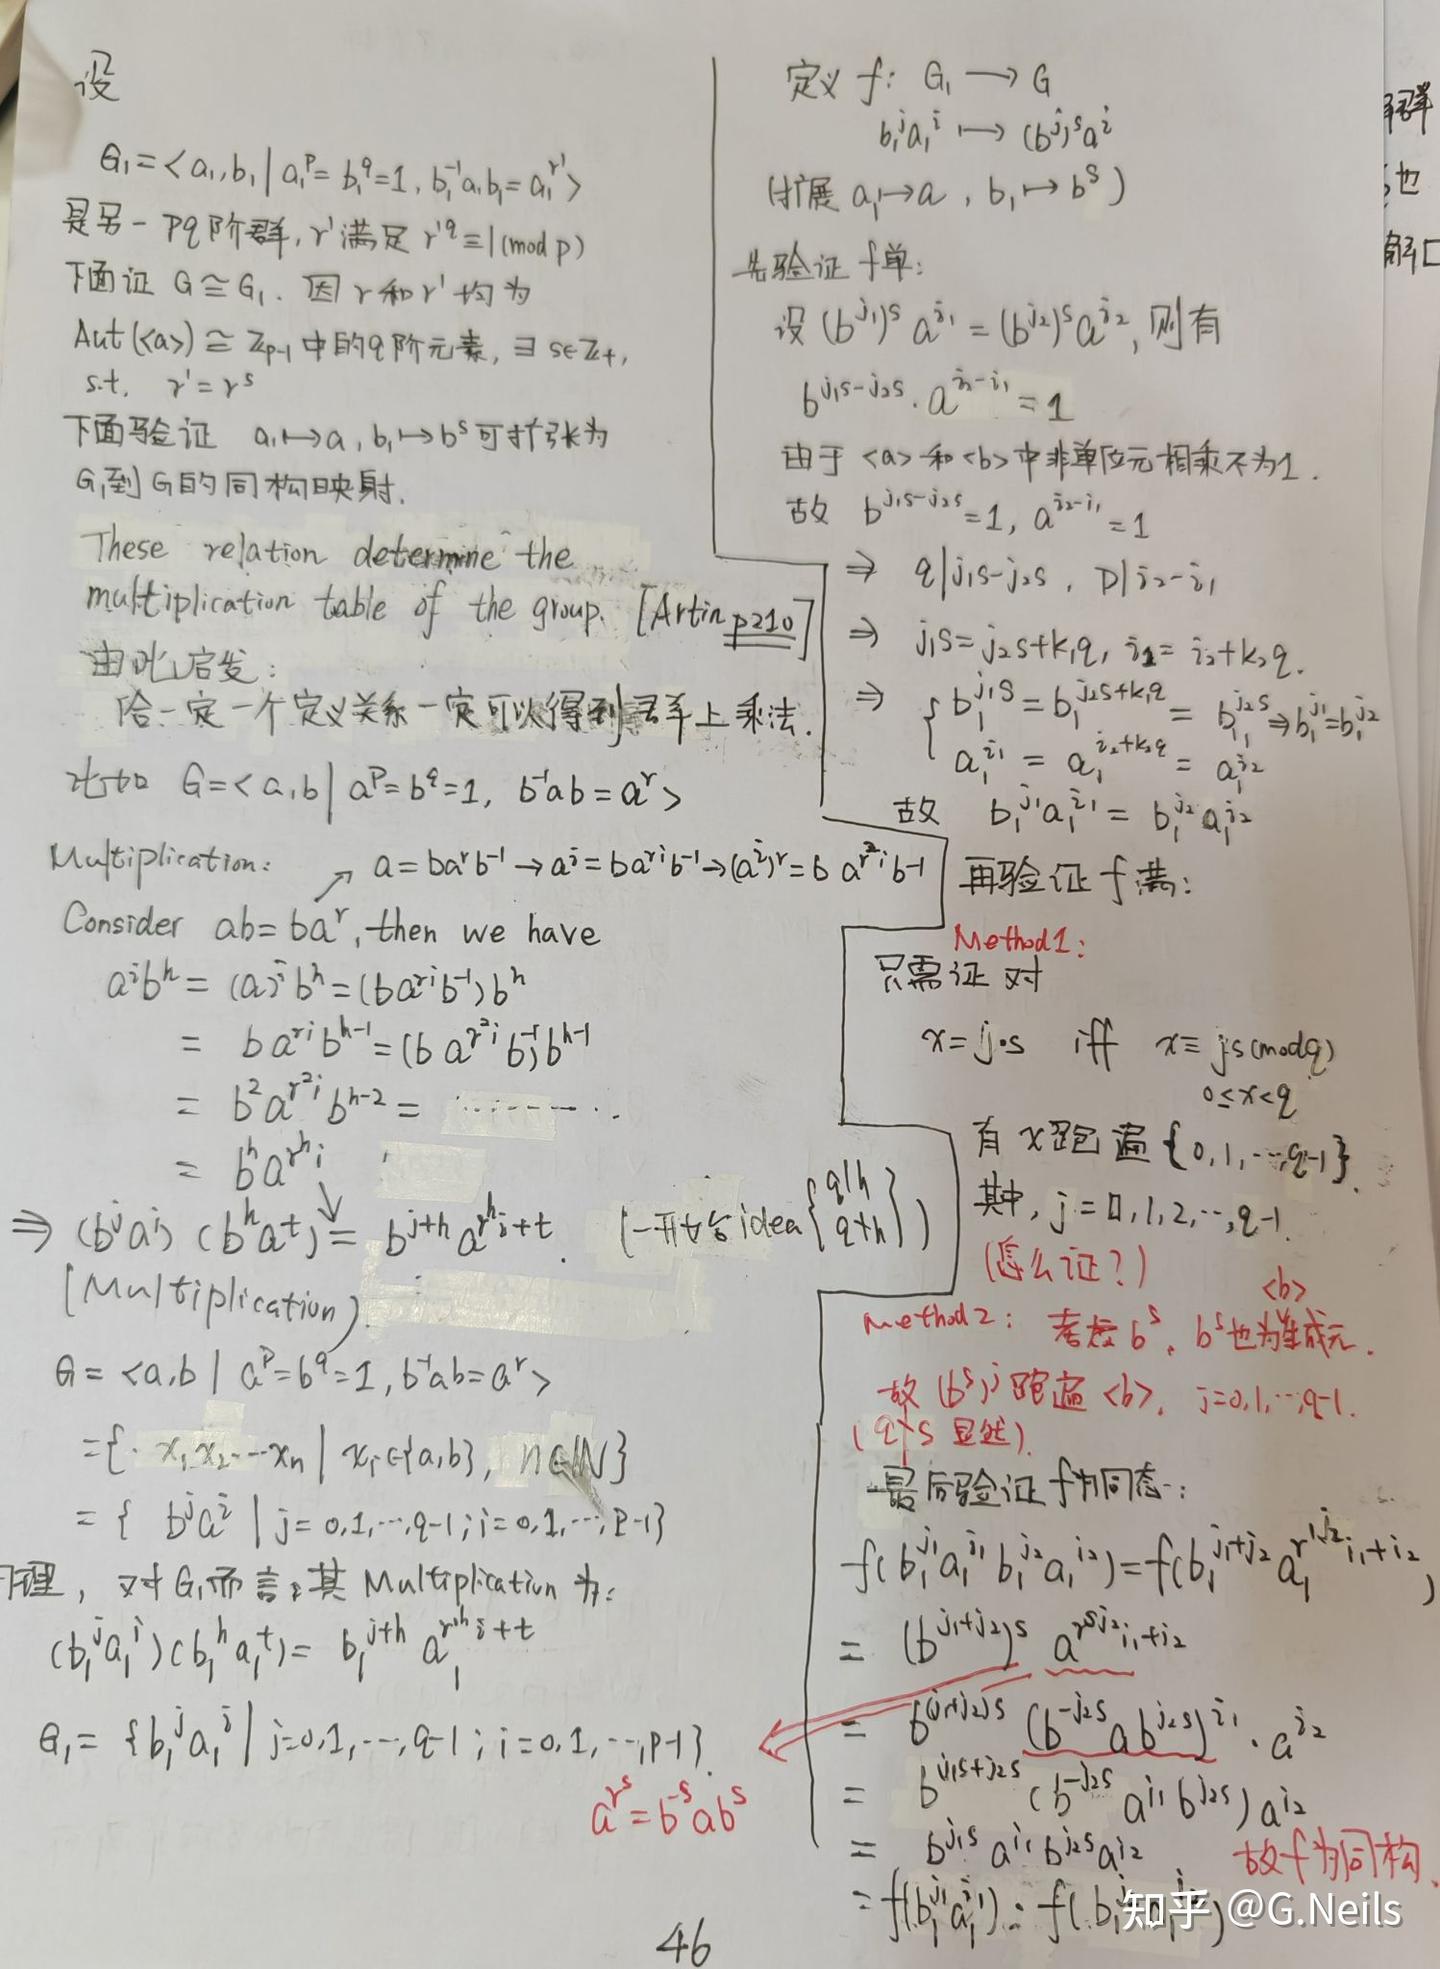 设
G₁=<a₁,b₁ | a₁^p=b₁^q=1, b₁^{-1}a₁b₁=a₁^{r'}>
是另一pq阶群,r'满足r'^q≡1(mod p)
下面证 G≅G₁. 因r和r'均为
Aut(<a>)≅Z_{p-1}中的q阶元素,∃ s∈Z₊,
s.t. r'=r^s
下面验证 a₁↦a, b₁↦b^s可扩张为
G₁到G的同构映射.
These relation determine the
multiplication table of the group. [Artin p210]
由此启发:
给一定一个定义关系一定可以得到群上乘法.
比如 G=<a,b | a^p=b^q=1, b^{-1}ab=a^r>
Multiplication: a=ba^rb^{-1}→a^i=ba^{ri}b^{-1}→(a^i)^r=b a^{r²i}b-1
Consider ab=ba^r, then we have
a^ib^h=(a)^ib^h=(ba^{ri}b^{-1})b^h
= ba^{ri}b^{h-1}=(ba^{r²i}b^{-1})b^{h-1}
= b²a^{r²i}b^{h-2}= ·········
= b^ha^{r^hi}
⇒ (b^ja^i)(b^ha^t)=b^{j+h}a^{r^hi+t}. (一开始idea{q|h q∤h})
(Multiplication)
G=<a,b | a^p=b^q=1, b^{-1}ab=a^r>
={x₁x₂···x_n | x_i∈{a,b}, n∈N}
={ b^ja^i | j=0,1,···,q-1; i=0,1,···,p-1}
同理, 对G₁而言,其Multiplication为:
(b₁^ja₁^i)(b₁^ha₁^t)=b₁^{j+h}a₁^{r'^hi+t}
G₁={b₁^ja₁^i | j=0,1,···,q-1; i=0,1,···,p-1}.
a^{r^s}=b^{-s}ab^s
定义 f: G₁→G
b₁^ja₁^i↦(b^j)^sa^i
(扩展 a₁↦a, b₁↦b^s)
先验证f单:
设(b^{j₁})^s a^{i₁}=(b^{j₂})^sa^{i₂},则有
b^{j₁s-j₂s}·a^{i₂-i₁}=1
由于<a>和<b>中非单位元相乘不为1.
故 b^{j₁s-j₂s}=1, a^{i₂-i₁}=1
⇒ q|j₁s-j₂s, p|i₂-i₁
⇒ j₁s=j₂s+k₁q, i₁=i₂+k₂q.
⇒ { b₁^{j₁s}=b₁^{j₂s+k₁q}=b₁^{j₂s}⇒b₁^{j₁}=b₁^{j₂}
a₁^{i₁}=a₁^{i₂+k₂q}=a₁^{i₂}
故 b₁^{j₁}a₁^{i₁}=b₁^{j₂}a₁^{i₂}
再验证f满:
Method1:
只需证对
x=j·s iff x≡js(modq)
0≤x<q
有x跑遍{0,1,···,q-1}.
其中,j=0,1,2,···,q-1.
(怎么证?)
Method2: 考虑b^s, b^s也为<b>生成元.
故(b^s)^j跑遍<b>, j=0,1,···,q-1.
(q∤s 显然).
最后验证f为同态:
f(b₁^{j₁}a₁^{i₁}b₁^{j₂}a₁^{i₂})=f(b₁^{j₁+j₂}a₁^{r'^{j₂}i₁+i₂})
= (b^{j₁+j₂})^s a^{r^{sj₂}i₁+i₂}
= b^{(j₁+j₂)s}(b^{-j₂s}ab^{j₂s})^{i₁}·a^{i₂}
= b^{j₁s+j₂s}(b^{-j₂s}a^{i₁}b^{j₂s})a^{i₂}
= b^{j₁s}a^{i₁}b^{j₂s}a^{i₂}
故f为同构.
=f(b₁^{j₁}a₁^{i₁})·f(b₁
46
知乎 @G.Neils
群
也
解